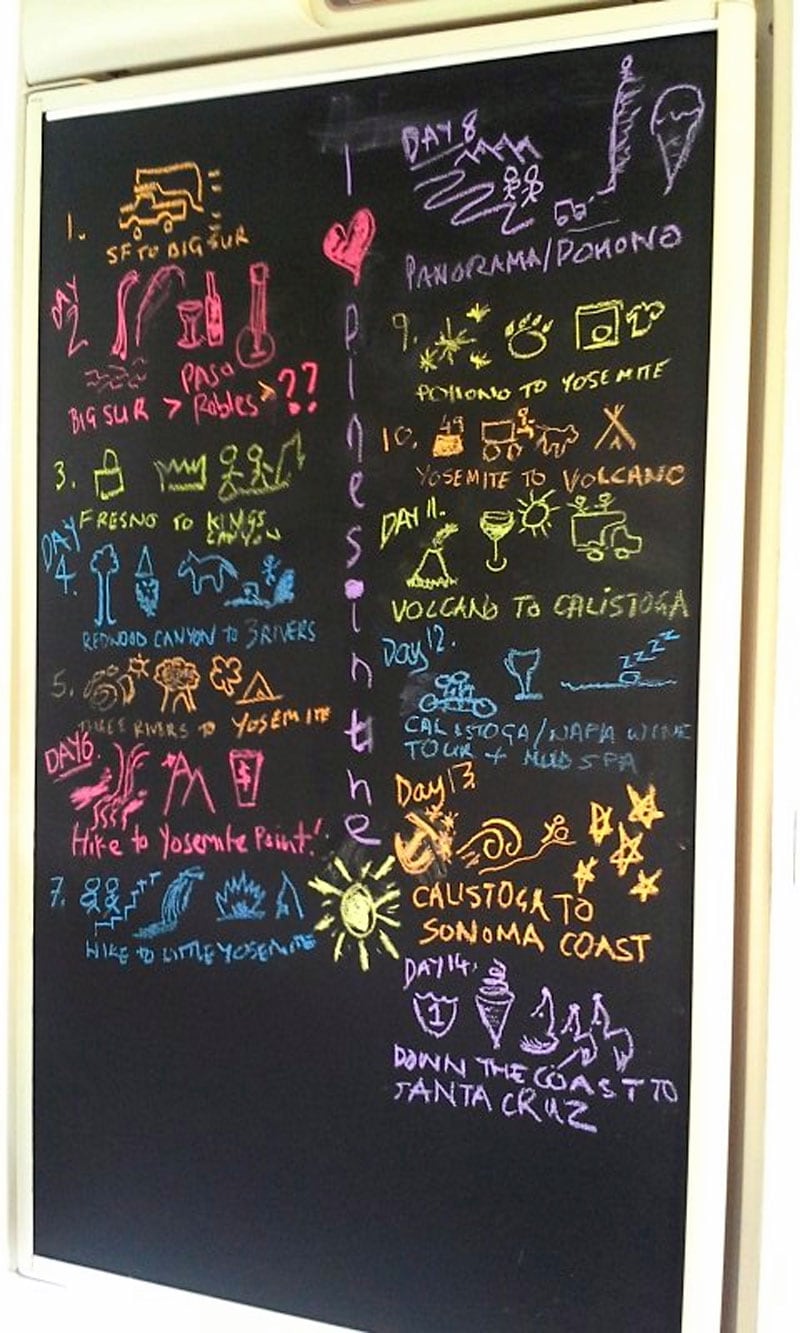 1.
SF TO BIG SUR
DAY 2
PASO
BIG SUR > Robles > ??
3.
FRESNO TO KINGS
CANYON
DAY
4.
REDWOOD CANYON TO 3 RIVERS
5.
THREE RIVERS TO YOSEMITE
DAY 6.
$
Hike to Yosemite Point!
7.
HIKE TO LITTLE YOSEMITE
I
pines.in.the
DAY 8
PANORAMA/POHONO
9.
POHONO TO YOSEMITE
10.
49
YOSEMITE TO VOLCANO
DAY 11.
VOLCANO TO CALISTOGA
Day 12.
zzzzz
CALISTOGA/NAPA WINE
TOUR + MUD SPA
Day 13
CALISTOGA TO
SONOMA COAST
DAY 14.
1
DOWN THE COAST TO
SANTA CRUZ